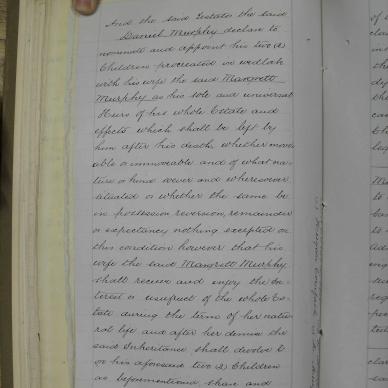 And the said Testator the said
Daniel Murphy declare to
nominate and appoint his two (2)
Children procreated in wedlock
with his wife the said Margrett
Murphy as his sole and universal
Heirs of his whole Estate and
effects which shall be left by
him after his death, whether move
able or immoveable and of what na
ture or kind soever and wheresoever
situated or whether the same be
in possession reversion, remainder
or expectancy nothing excepted on
this condition however that his
wife the said Margrett Murphy
shall receive and enjoy the In-
terest or usufruct of the whole Es-
tate during the term of her natu
ral life and after her demise the
said Inheritance shall devolve to
on his aforesaid two (2) Children
as beforementioned share and